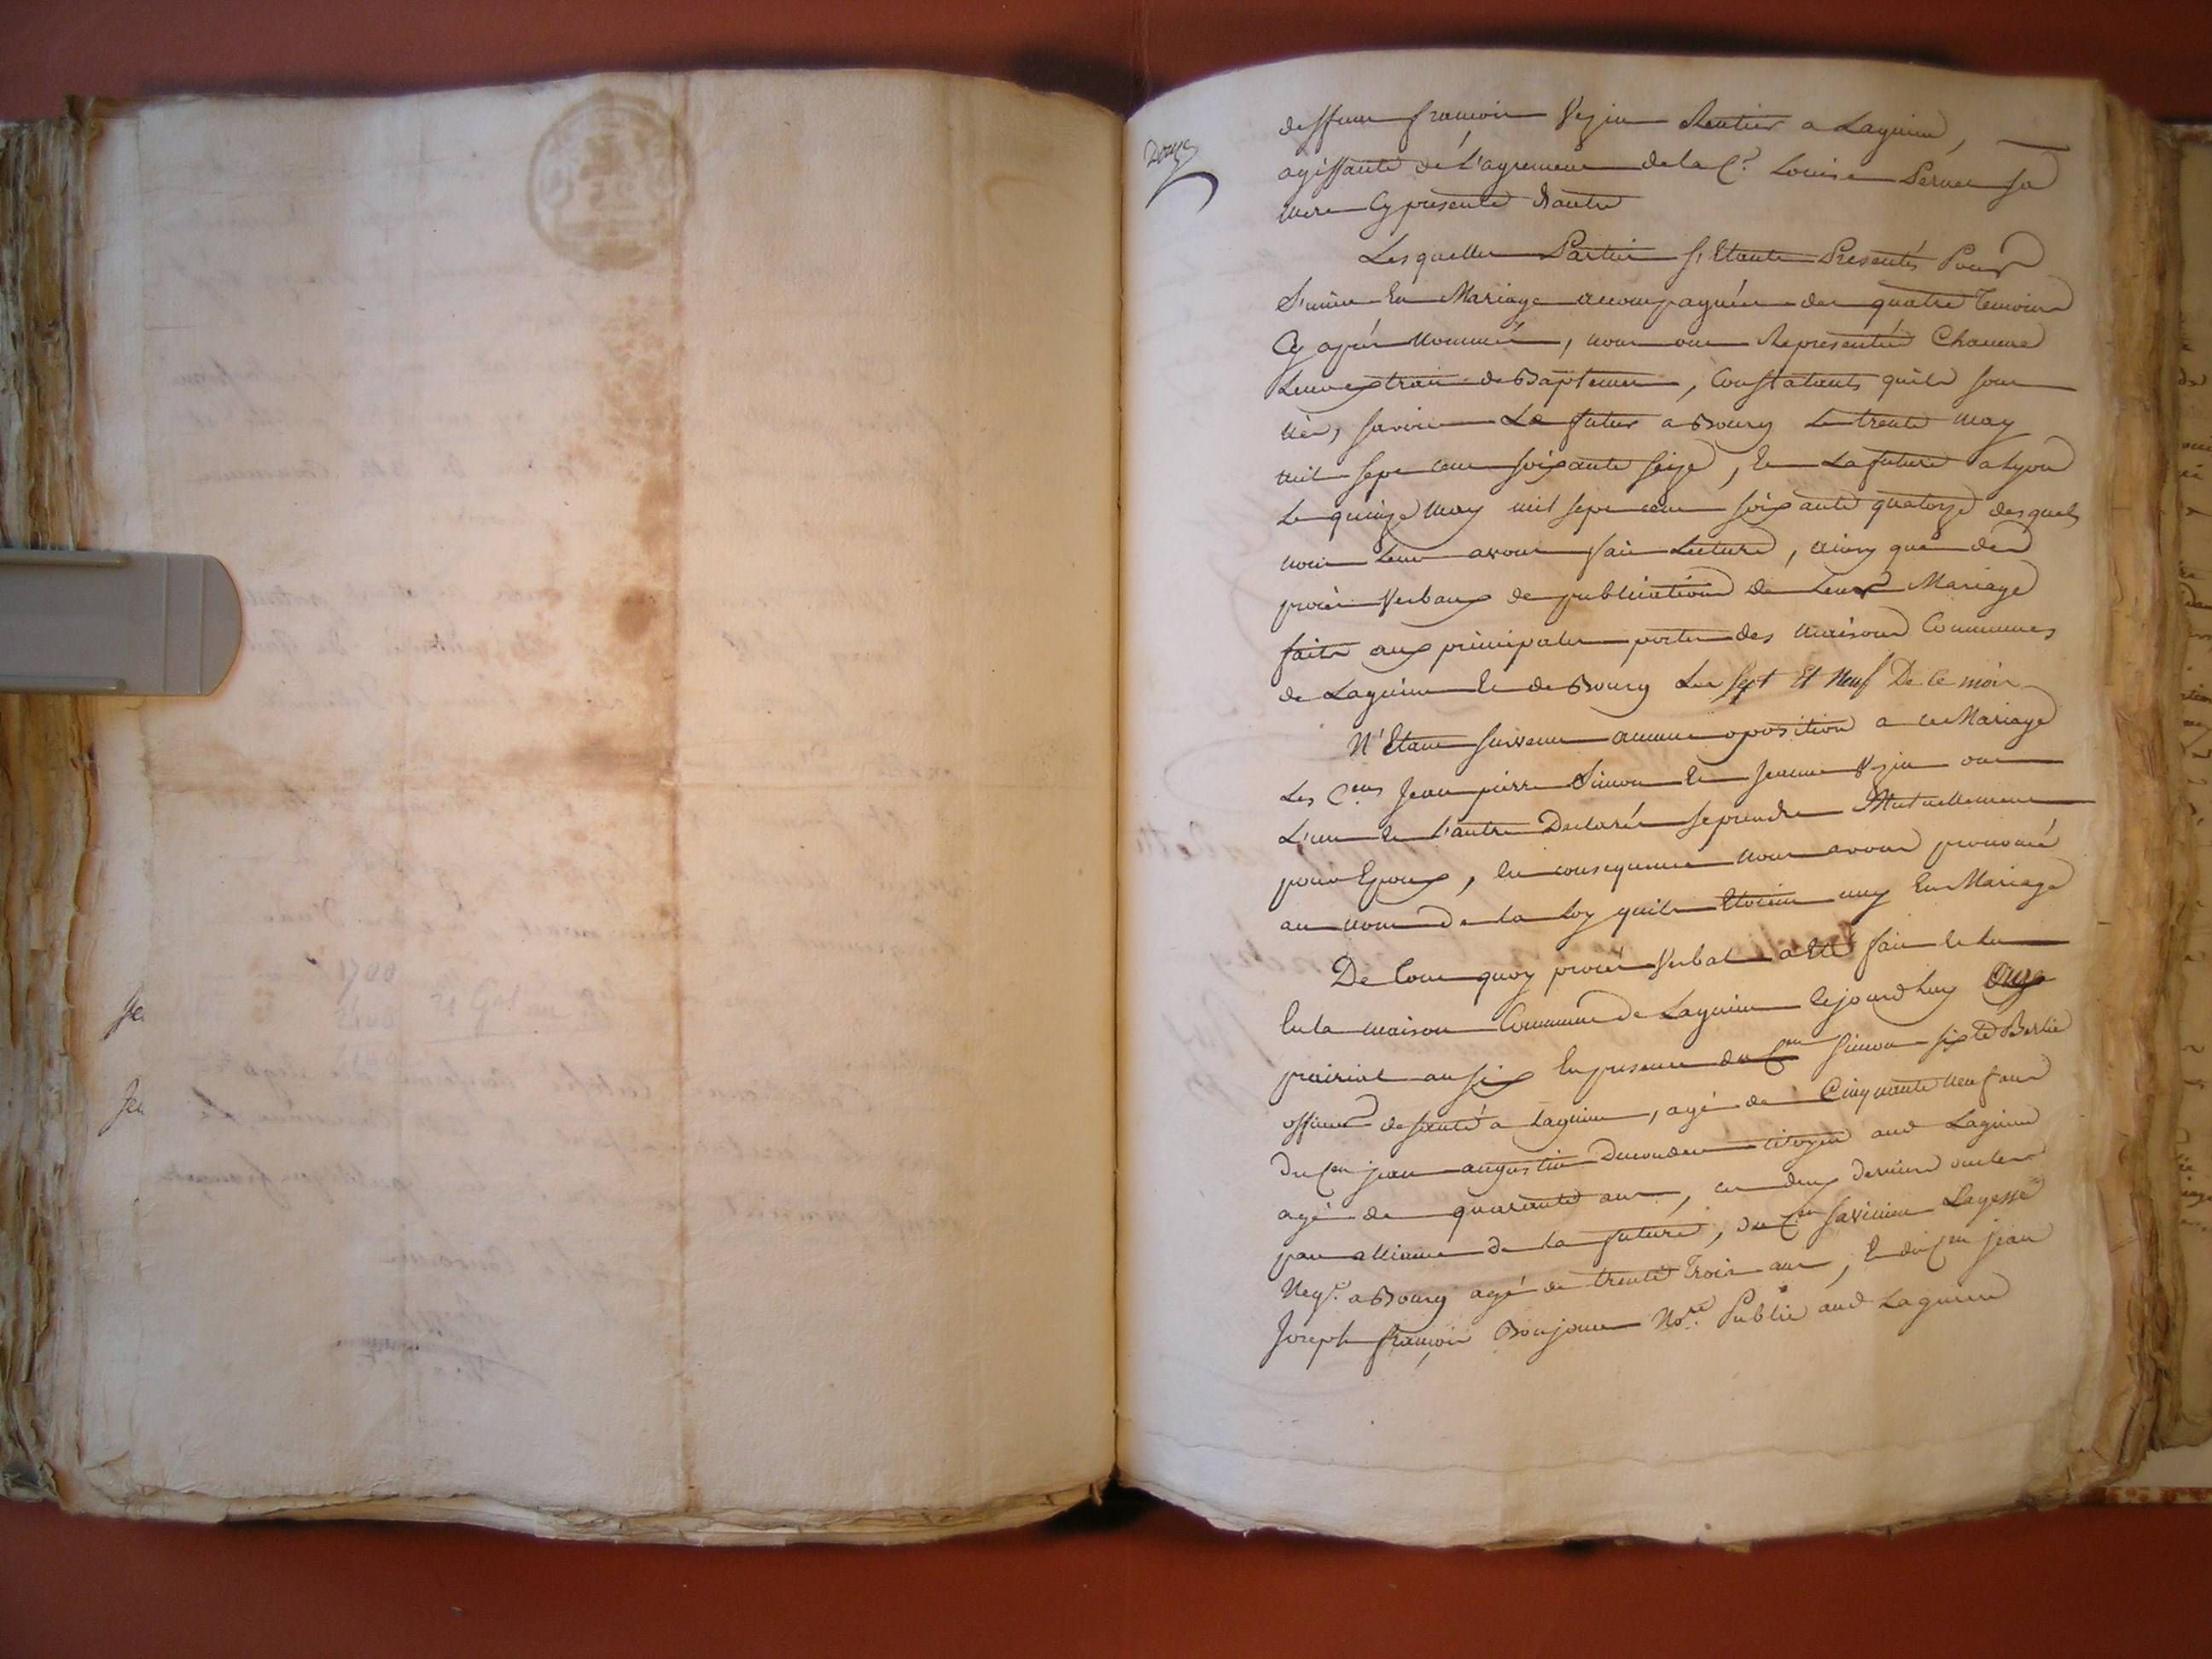 Douze
deffunt francois Vezin Rentier a Lagnieu,
agissante de l'agrement de la C.e Louise Pernet sa
mere Cy presente d'autre
Les quelles Parties s'Etante Presentés Pour
S'unir En Mariage accompagnées des quatre Temoins
Cy aprés nommés, nous ont Representés Chacune
Leurs extrait de Baptemes, Constatants quils sont
nés, savoir Le futur a Bourg Le trente may
mil sept cent soixante seize, Et La future a Lyon
Le quinze may mil sept cent soixante quatorze desquels
nous Leur avons fait Lecture, ainsy que des
procés Verbaux de publication de Leur Mariage
faits aux principales portes des maisons Communes
de Lagnieu Et de Bourg Les sept Et Neuf De ce mois
N'Etant survenu aucune oposition a ce Mariage
Les C.ens Jean pierre Simon Et Jeanne Vezin ont
L'un Et l'autre Declarés se prendre Mutuellement
pour Epoux, En consequence nous avons prononcé
au nom de la Loy quils Etoient unis En Mariage
De Tout quoy procés Verbal a Eté fait Et Lu
En la maison Commune de Lagnieu Cejourd'huy Onze
prairial an six En presence du C.en Simon sixte Berlie
officier de santé a Lagnieu, agé de Cinquante neuf ans
du C.en jean augustin citoyen aud Lagnieu
agé de quarante ans, ces deux derniers oncles
par alliance de la future, du C.en savinien Layesse
Neg.t a Bourg agé de trente Trois ans, Et du C.en jean
Joseph françois Bonjour No.re Public aud Lagnieu